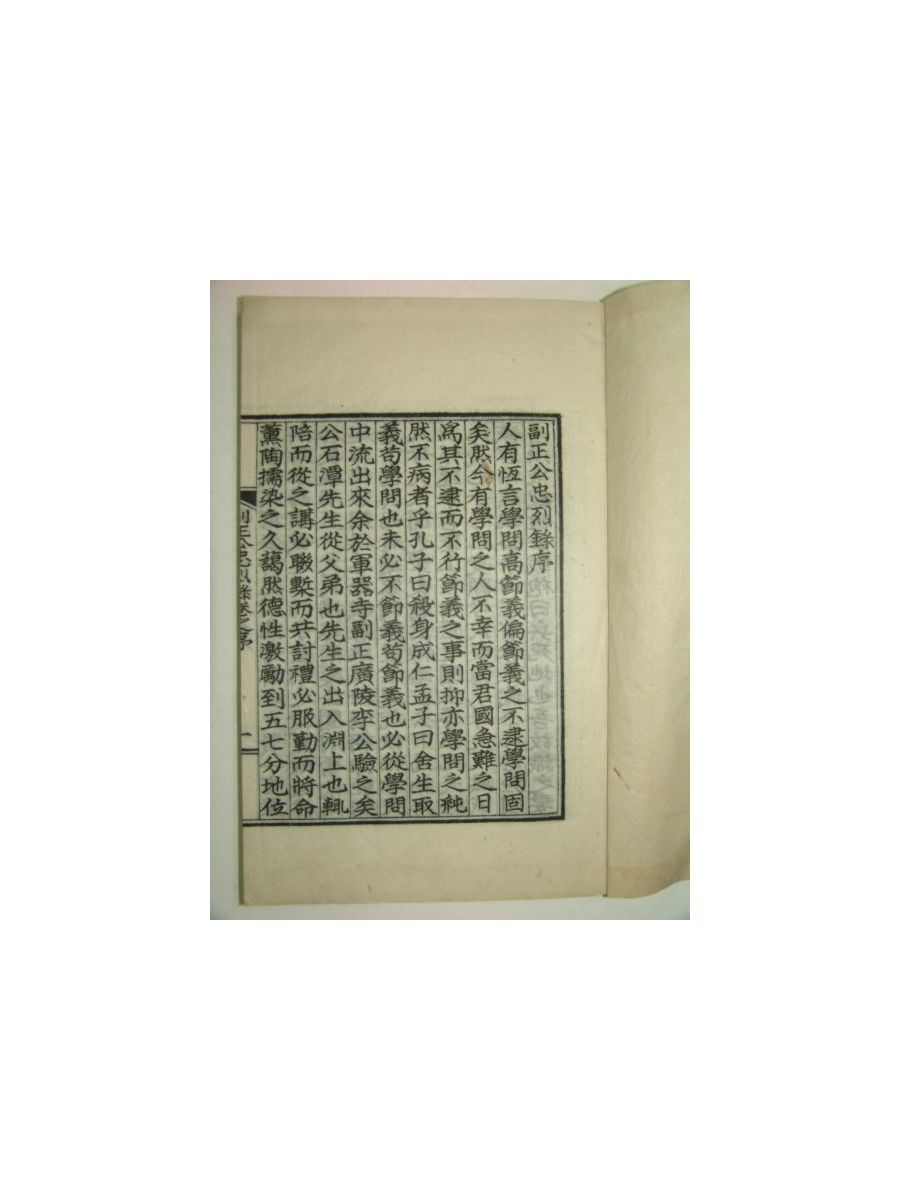 副正公忠烈錄序
人有恆言學問高節義偏節義之不逮學問固
矣然今有學問之人不幸而當君國急難之日
爲其不逮而不行節義之事則抑亦學問之純
然不病者乎孔子曰殺身成仁孟子曰舍生取
義苟學問也未必不節義苟節義也必從學問
中流出來余於軍器寺副正廣陵李公驗之矣
公石潭先生從父弟也先生之出入淵上也輒
陪而從之講必聯槧而共討禮必服勤而將命
薰陶擩染之久藹然德性激勵到五七分地位
副正公忠烈錄卷之序
一